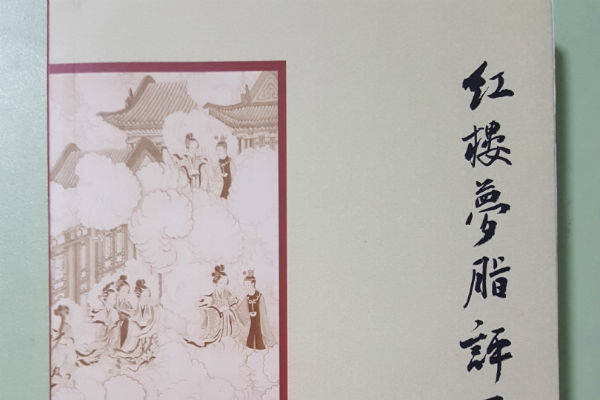 红楼夢脂評